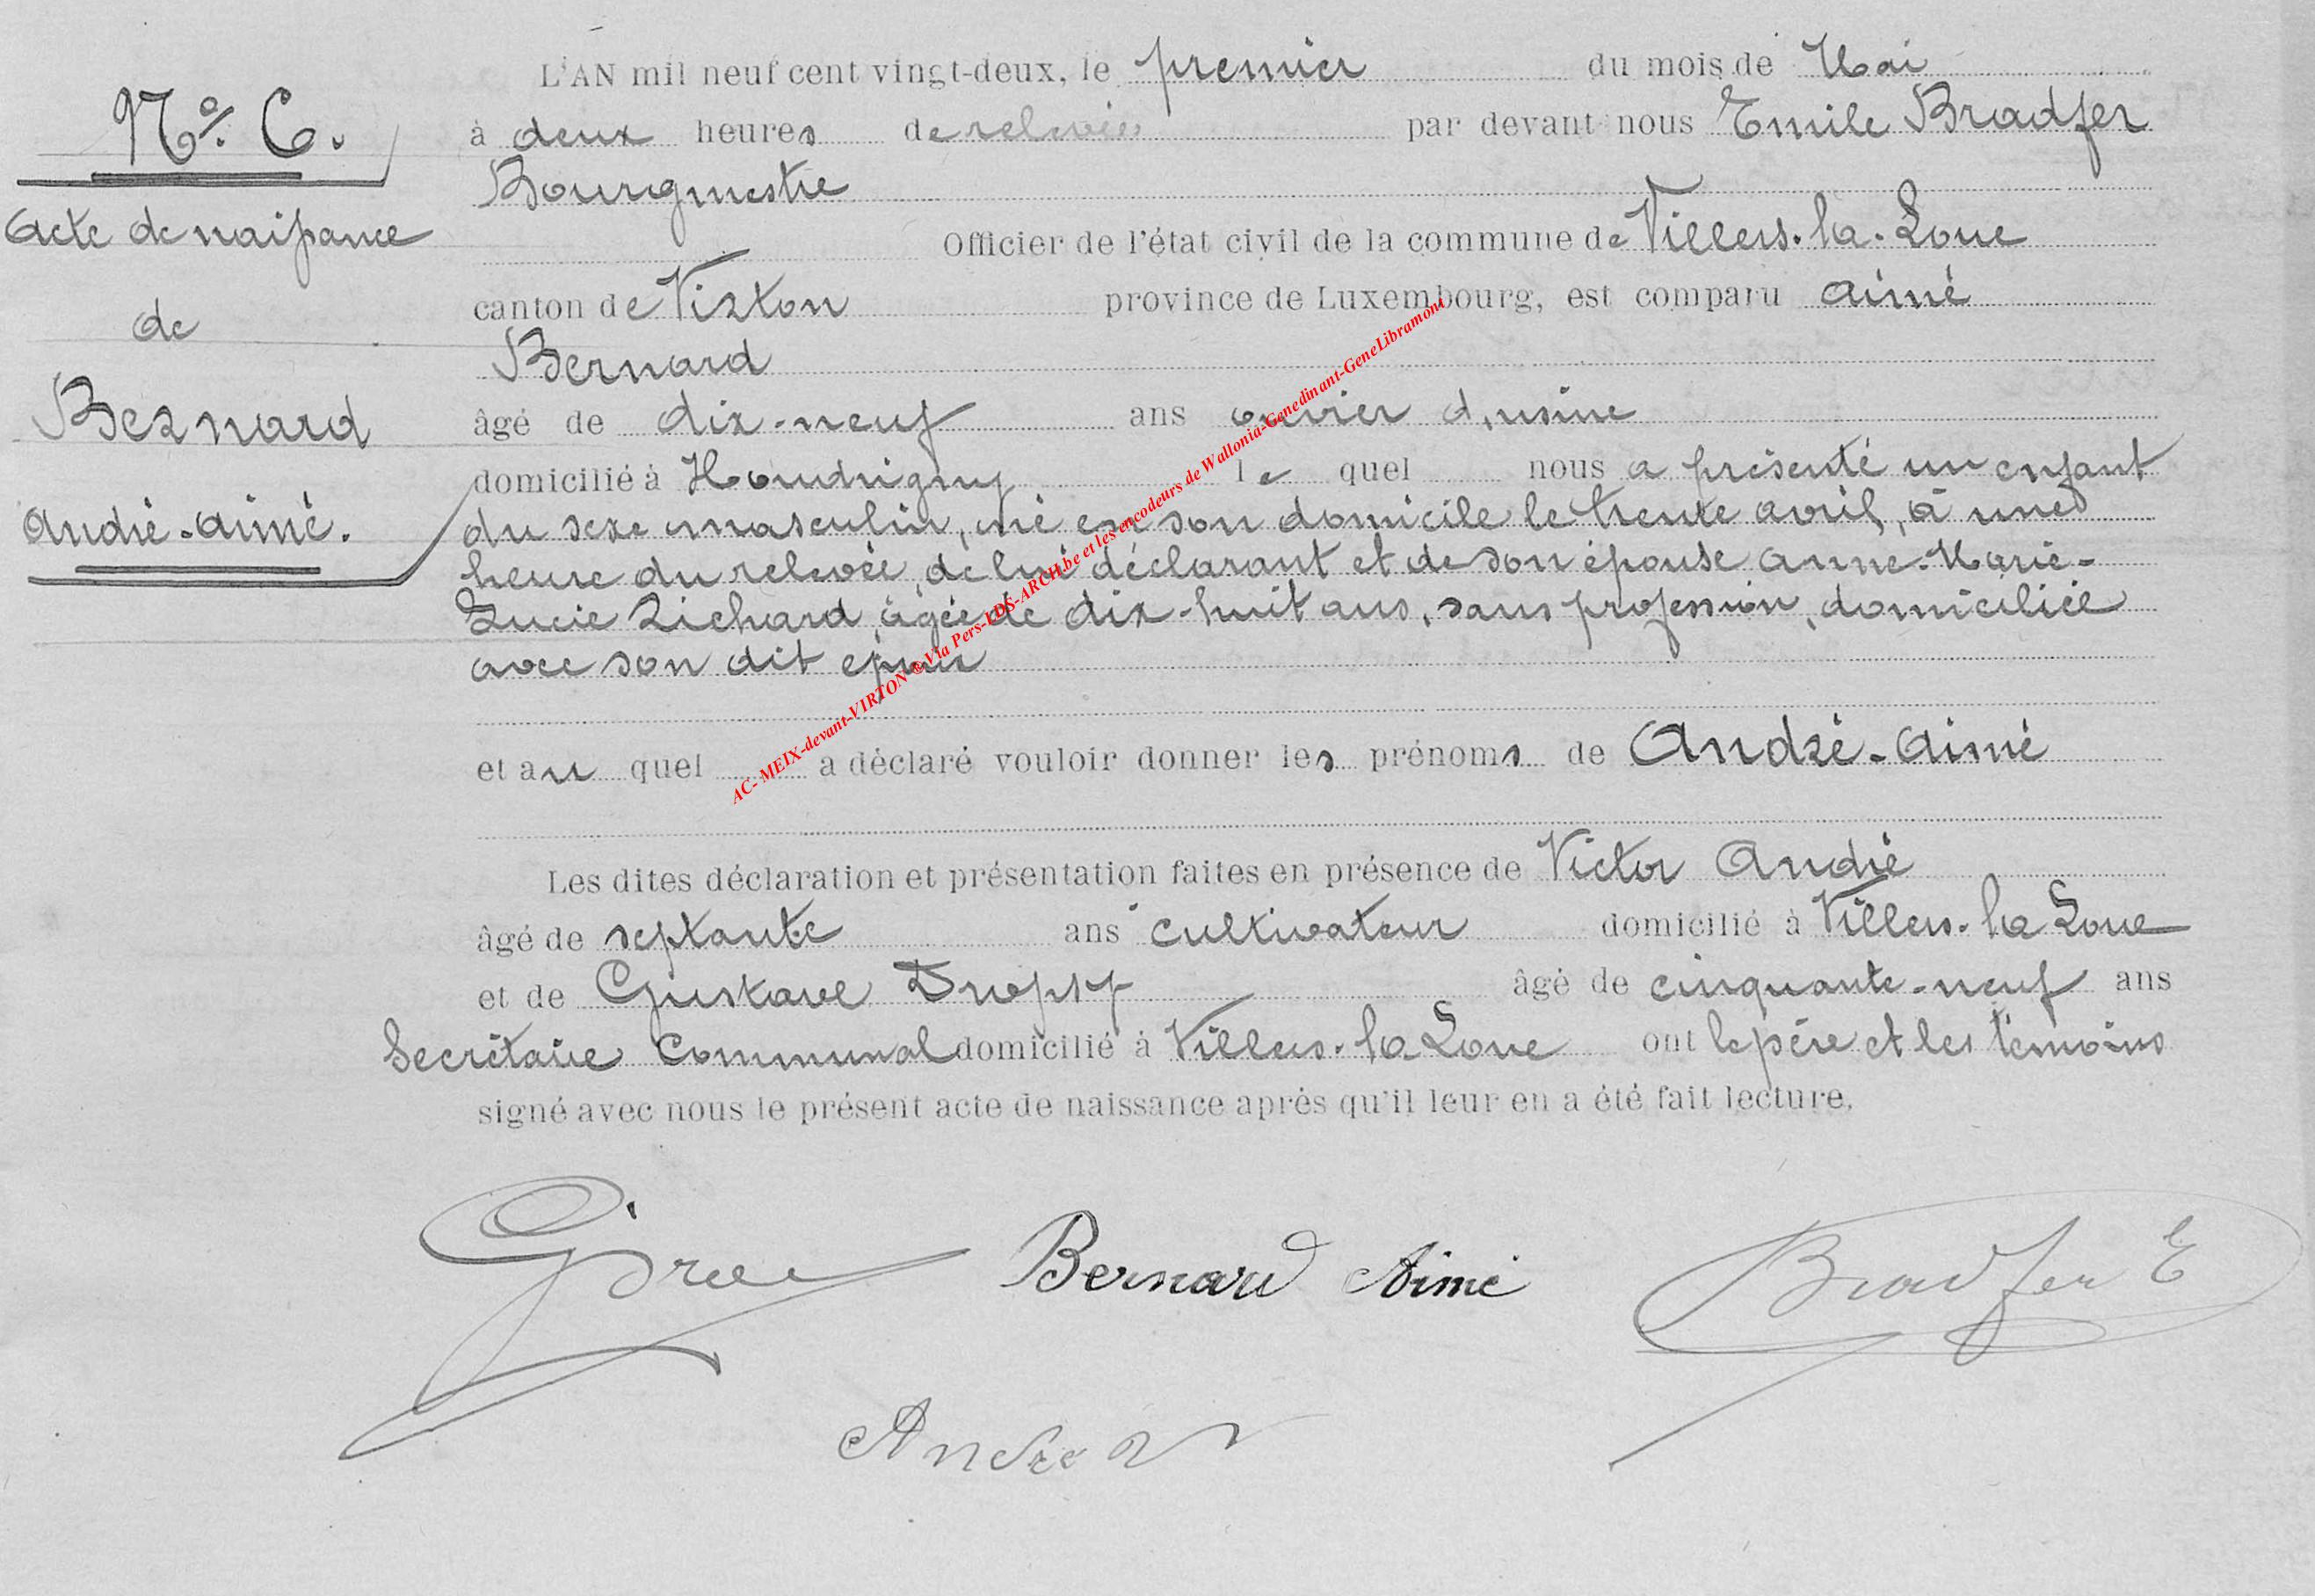 L'AN mil neuf cent vingt-deux, le premier du mois de Mai
à deux heures de relevée par devant nous Emile Bradfer
Bourgmestre
Officier de l'état civil de la commune de Villers-la-Loue
canton de Virton province de Luxembourg, est comparu Aimé
Bernard
âgé de dix-neuf ans ouvrier d'usine
domicilié à Houdrigny le quel nous a présenté un enfant
du sexe masculin, né en son domicile le trente avril, à une
heure du relevée, de lui déclarant et de son épouse Anne-Marie-
Lucie Richard, âgée de dix-huit ans, sans profession, domiciliée
avec son dit époux
et au quel a déclaré vouloir donner les prénoms de André-Aimé
Les dites déclaration et présentation faites en présence de Victor André
âgé de septante ans cultivateur domicilié à Villers-la-Loue
et de Gustave Dropsy âgé de cinquante-neuf ans
Secrétaire Communal domicilié à Villers-la-Loue ont le père et les témoins
signé avec nous le présent acte de naissance après qu'il leur en a été fait lecture.
No. 6.
Acte de naissance
de
Bernard
André-Aimé.
AC- MEIX-devant-VIRTON ® Via Pers-LDS-ARCH.be et les encodeurs de Wallonia-Genedinant-GeneLibramont
Bernard Aimé
Bradfer E
André V